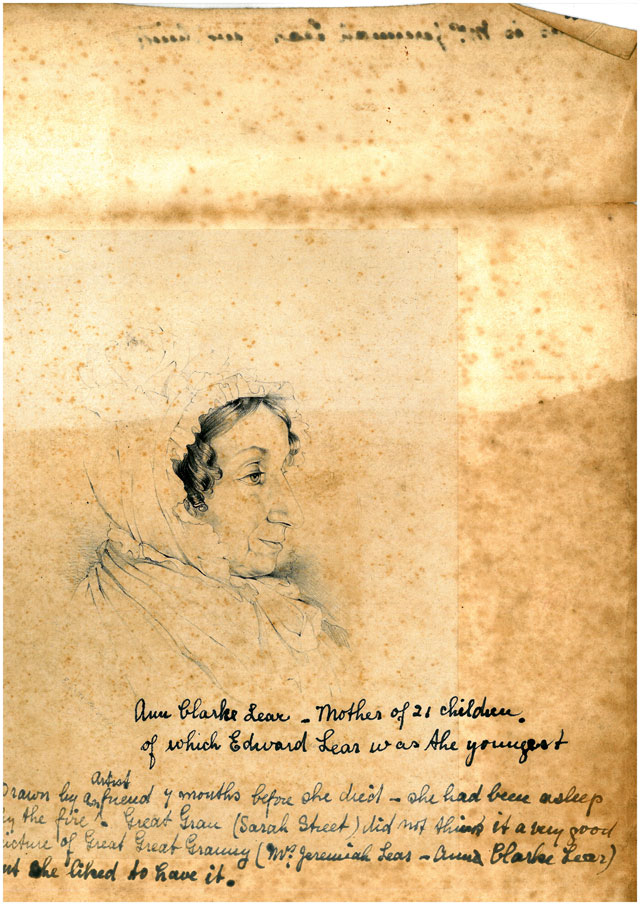 Mrs Jeremiah Lear
Ann Clarke Lear – Mother of 21 children.
of which Edward Lear was the youngest
Artist
Drawn by a friend 7 months before she died – she had been asleep
by the fire – Great Gran (Sarah Street) did not think it a very good
picture of Great Great Granny (Mrs Jeremiah Lear – Ann Clarke Lear)
but she liked to have it.